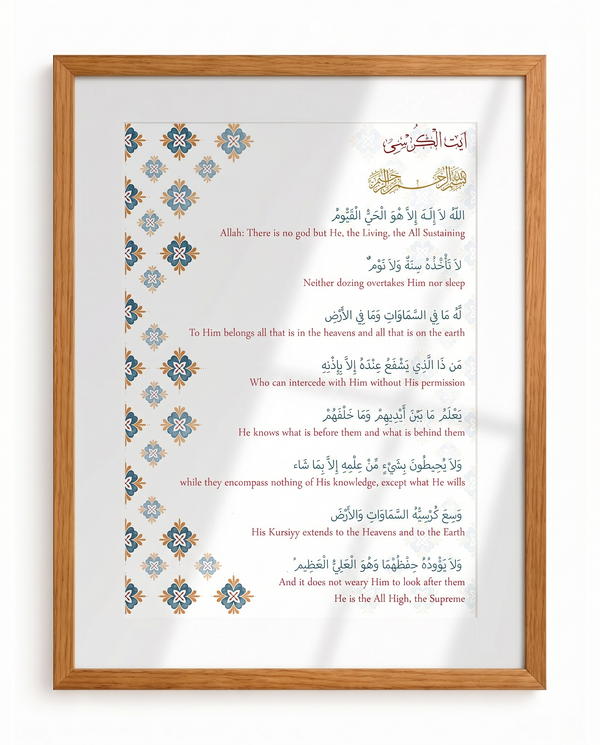 آيت الكُرْسِي
بسم الله الرحمن الرحيم
اللّهُ لاَ إِلَـهَ إِلاَّ هُوَ الْحَيُّ الْقَيُّومُ
Allah: There is no god but He, the Living, the All Sustaining
لاَ تَأْخُذُهُ سِنَةٌ وَلاَ نَوْمٌ
Neither dozing overtakes Him nor sleep
لَّهُ مَا فِي السَّمَاوَاتِ وَمَا فِي الأَرْضِ
To Him belongs all that is in the heavens and all that is on the earth
مَن ذَا الَّذِي يَشْفَعُ عِنْدَهُ إِلاَّ بِإِذْنِهِ
Who can intercede with Him without His permission
يَعْلَمُ مَا بَيْنَ أَيْدِيهِمْ وَمَا خَلْفَهُمْ
He knows what is before them and what is behind them
وَلاَ يُحِيطُونَ بِشَيْءٍ مِّنْ عِلْمِهِ إِلاَّ بِمَا شَاء
while they encompass nothing of His knowledge, except what He wills
وَسِعَ كُرْسِيُّهُ السَّمَاوَاتِ وَالأَرْضَ
His Kursiyy extends to the Heavens and to the Earth
وَلاَ يَؤُودُهُ حِفْظُهُمَا وَهُوَ الْعَلِيُّ الْعَظِيمُ
And it does not weary Him to look after them
He is the All High, the Supreme